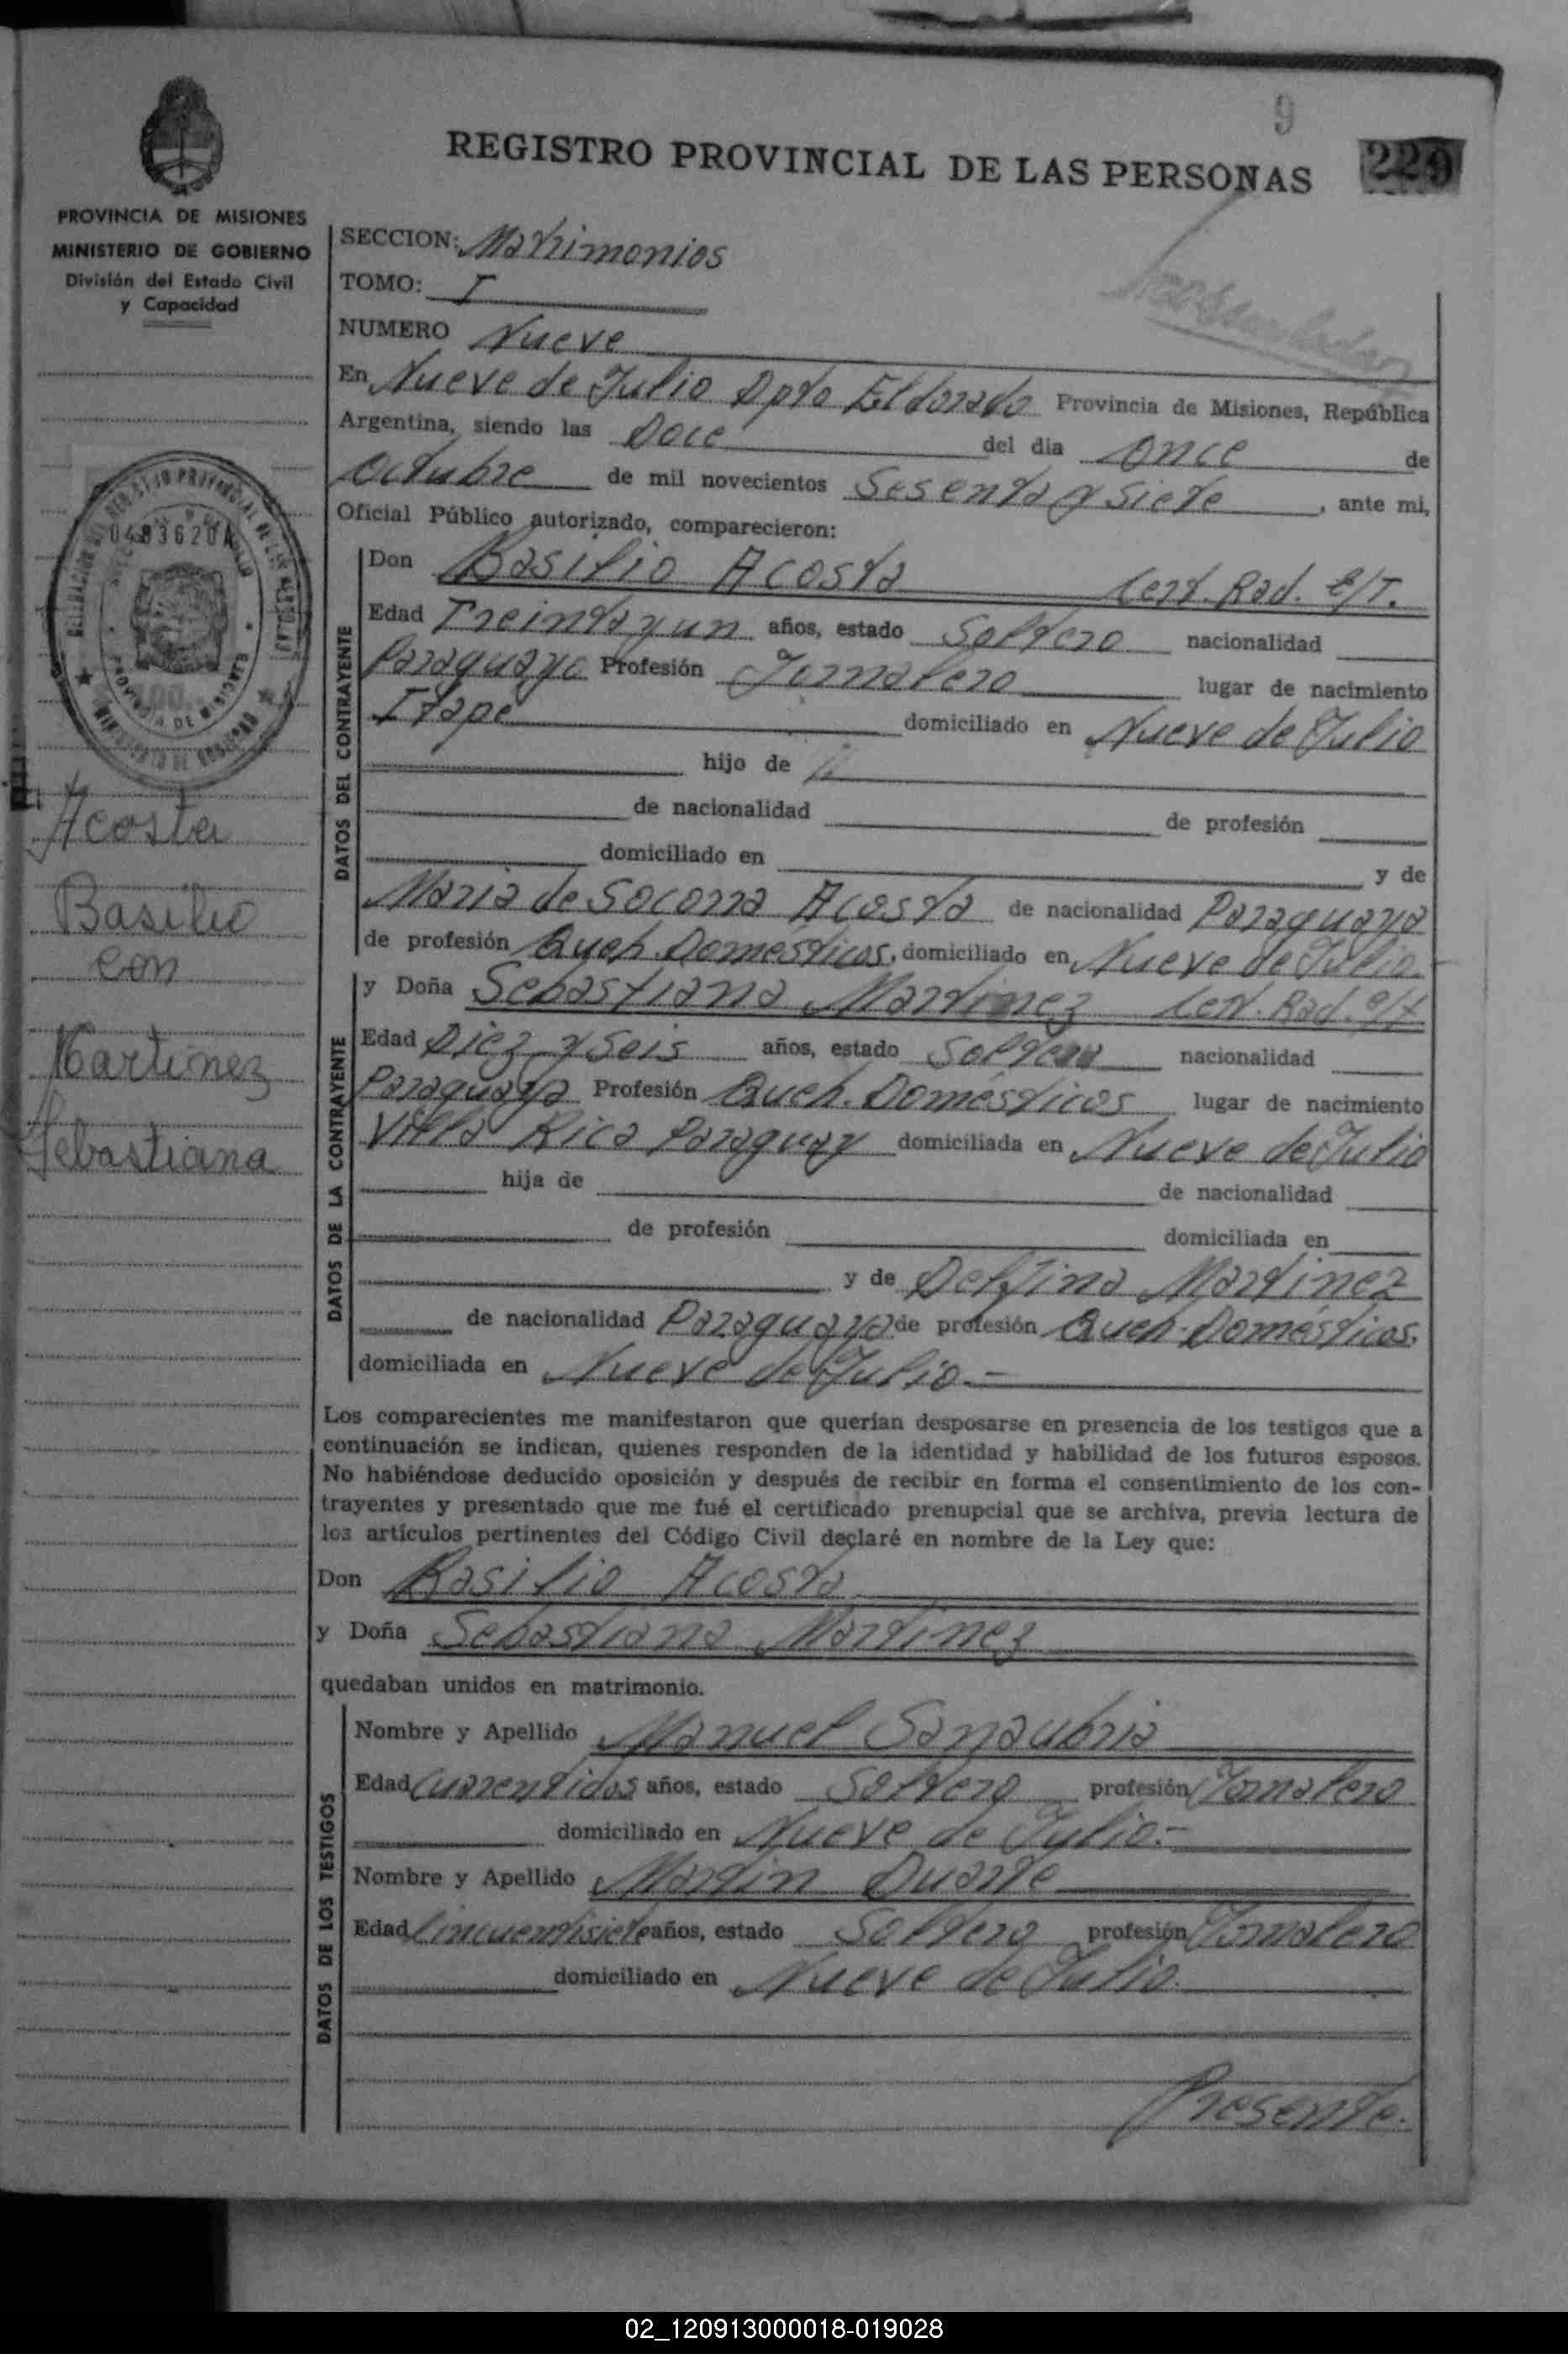 9
REGISTRO PROVINCIAL DE LAS PERSONAS 229
PROVINCIA DE MISIONES
MINISTERIO DE GOBIERNO
División del Estado Civil
y Capacidad
0483620A
Acosta
Basilio
con
Martinez
Sebastiana
SECCION: Matrimonios
TOMO: I
NUMERO Nueve
En Nueve de Julio Dpto Eldorado Provincia de Misiones, República
Argentina, siendo las Doce del dia Once de
Octubre de mil novecientos Sesenta y Siete, ante mi,
Oficial Público autorizado, comparecieron:
DATOS DEL CONTRAYENTE
Don Basilio Acosta Cert. Rad. E/T.
Edad Treinta y un años, estado Soltero nacionalidad
Paraguayo Profesión Jornalero lugar de nacimiento
Itape domiciliado en Nueve de Julio
hijo de
de nacionalidad de profesión
domiciliado en y de
Maria de Socorra Acosta de nacionalidad Paraguaya
de profesión Queh. Domesticos, domiciliado en Nueve de Julio
DATOS DE LA CONTRAYENTE
y Doña Sebastiana Martinez Cert. Rad. e/t
Edad Diez y Seis años, estado Soltera nacionalidad
Paraguaya Profesión Queh. Domésticos lugar de nacimiento
Villa Rica Paraguay domiciliada en Nueve de Julio
hija de de nacionalidad
de profesión domiciliada en
y de Delfina Martinez
de nacionalidad Paraguaya de profesión Queh. Domésticos.
domiciliada en Nueve de Julio.-
Los comparecientes me manifestaron que querían desposarse en presencia de los testigos que a
continuación se indican, quienes responden de la identidad y habilidad de los futuros esposos.
No habiéndose deducido oposición y después de recibir en forma el consentimiento de los con-
trayentes y presentado que me fué el certificado prenupcial que se archiva, previa lectura de
los artículos pertinentes del Código Civil declaré en nombre de la Ley que:
Don Basilio Acosta
y Doña Sebastiana Martinez
quedaban unidos en matrimonio.
DATOS DE LOS TESTIGOS
Nombre y Apellido Manuel Sanaubria
Edad Cuarentidos años, estado Soltero profesión Jornalero
domiciliado en Nueve de Julio.-
Nombre y Apellido Martin Duarte
Edad Cincuentisiete años, estado Soltero profesión Jornalero
domiciliado en Nueve de Julio.
Presente.
02_120913000018-019028